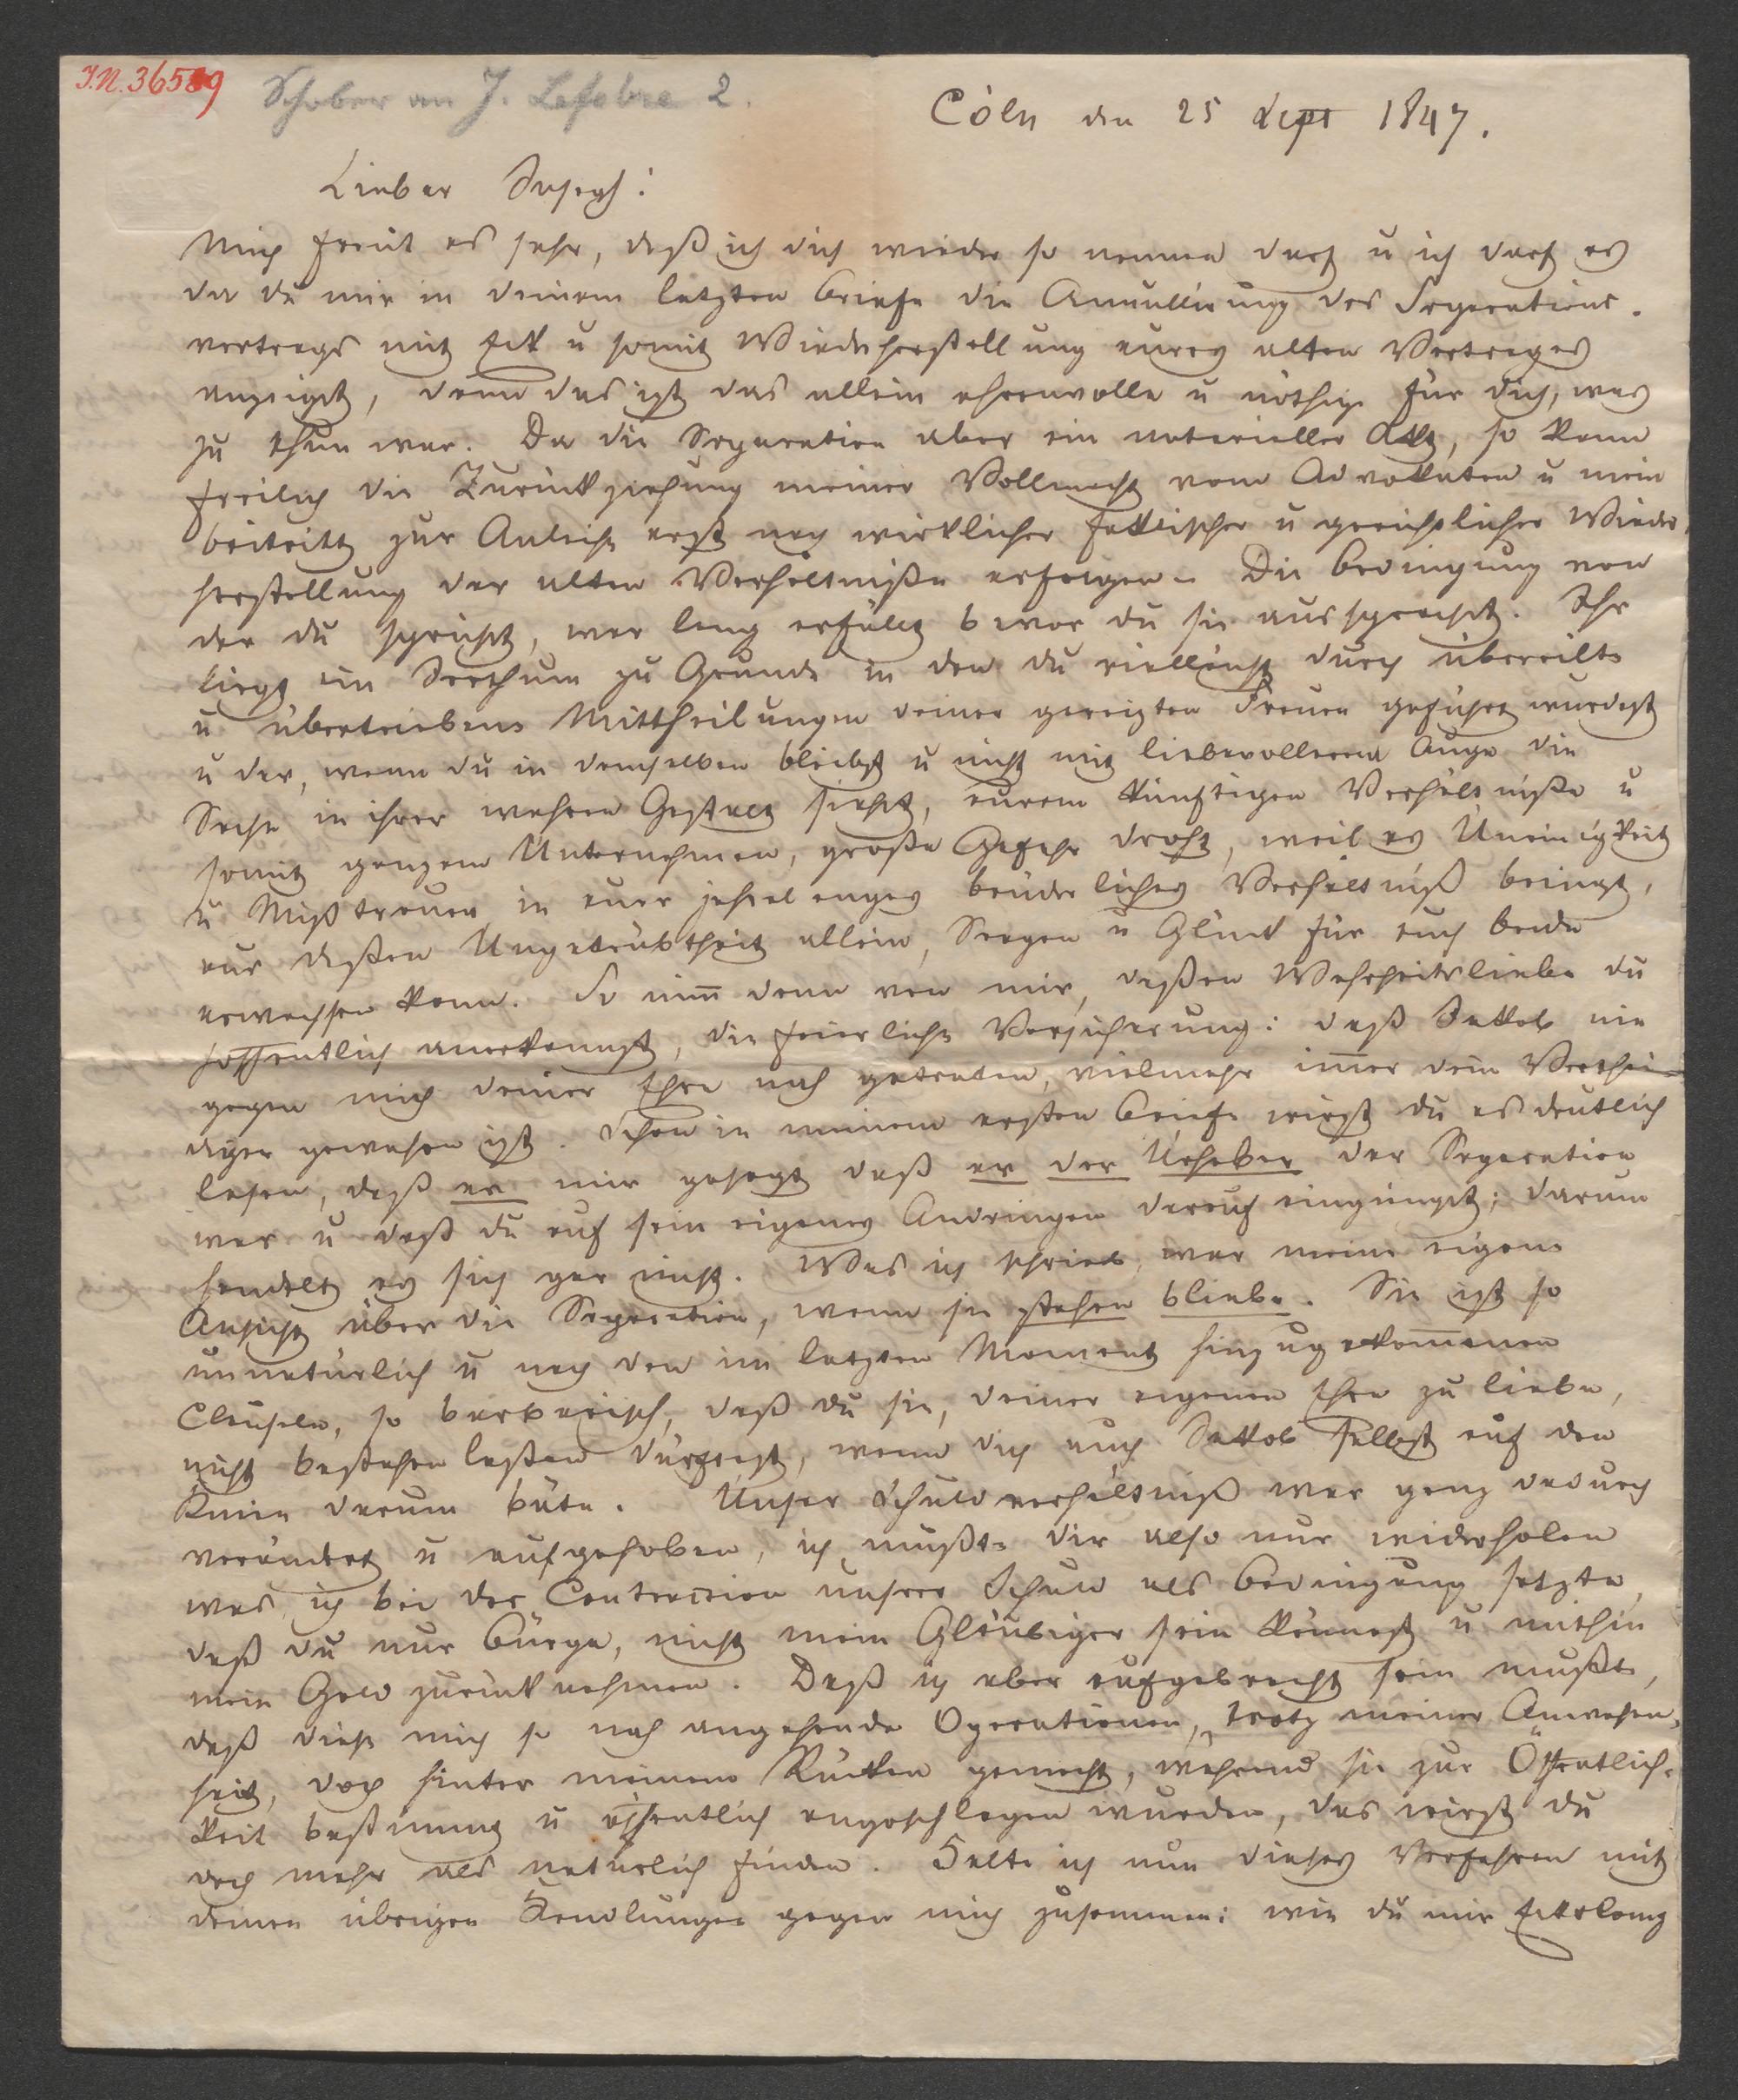 I.N. 36589
Schober an J. Lefebre 2.
Cöln den 25 Sept 1847.
Lieber Joseph!
Mich freut es sehr, daß ich dich wieder so nennen darf u ich darf es
da du mir in deinem letzten Briefe die Annullirung des Separations-
vertrags mit Eck u somit Wiederherstellung eures alten Vertrages
anzeigst, denn das ist das allein ehrenvolle u nöthige für dich, was
zu thun war. Da die Separation aber ein notarieller Akt, so kann
freilich die Zurückziehung meiner Vollmacht vom Advokaten u mein
beitritt zur Anleihe erst nach wirklicher faktischer u gerichtlicher Wieder-
herstellung der alten Verhältniße erfolgen. Die Bedingung von
der du sprichst, war lang erfüllt bevor du sie aussprachst. Ihr
liegt ein Irrthum zu Grunde in den du vielleicht durch übereilte
u übertriebene Mittheilungen deiner gereizten Frauen geführt wurdest
u der, wenn du in demselben bleibst u nicht mit liebevollerem Auge die
Sache in ihrer wahren Gestalt siehst, eurem künftigen Verhältniße u
somit ganzem Unternehmen, große Gefahr droht, weil es Uneinigkeit
u Mißtrauen in euer jahrelanges brüderliches Verhältniß bringt,
aus deßen Ungetrübtheit allein, Segen u Glück für euch beide
erwachsen kann. So nim̅ denn von mir, deßen Wahrheitsliebe du
hoffentlich anerkennst, die feierliche Versicherung: daß Jakob nie
gegen mich deiner Ehre nah getreten, vielmehr im̅er dein Verthei-
diger gewesen ist. Schon in meinem ersten Briefe wirst du es deutlich
lesen, daß er mir gesagt daß er der Urheber der Separation
war u daß du auf sein eigenes Andringen darauf eingingst; darum
handelt es sich gar nicht. Was ich schrieb, war meine eigene
Ansicht über die Separation, wenn sie stehen bliebe. Sie ist so
unnatürlich u nach den im letzten Moment hinzugekom̅enen
Clauseln, so barbarisch, daß du sie, deiner eigenen Ehre zu liebe,
nicht bestehen laßen dürftest, wenn dich auch Jakob selbst auf den
Knien darum bäte. Unser Schuldverhältniß war ganz dadurch
verändert u aufgehoben, ich mußte dir also nur widerholen
was ich bei der Contraction unsrer Schuld als Bedingung setzte,
daß du nur Bürge, nicht mein Gläubiger sein könnest u mithin
mein Geld zurück nehmen. Daß ich aber aufgebracht sein mußte,
daß diese mich so nah angehende Operationen, trotz meiner Anwesen-
heit, doch hinter meinem Rücken gemacht, während sie zur Öffentlich-
keit bestimmt u öffentlich angeschlagen wurden, das wirst du
doch mehr als natürlich finden. Halte ich nun dieses Verfahren mit
deinen übrigen Handlungen gegen mich zusammen: wie du mir